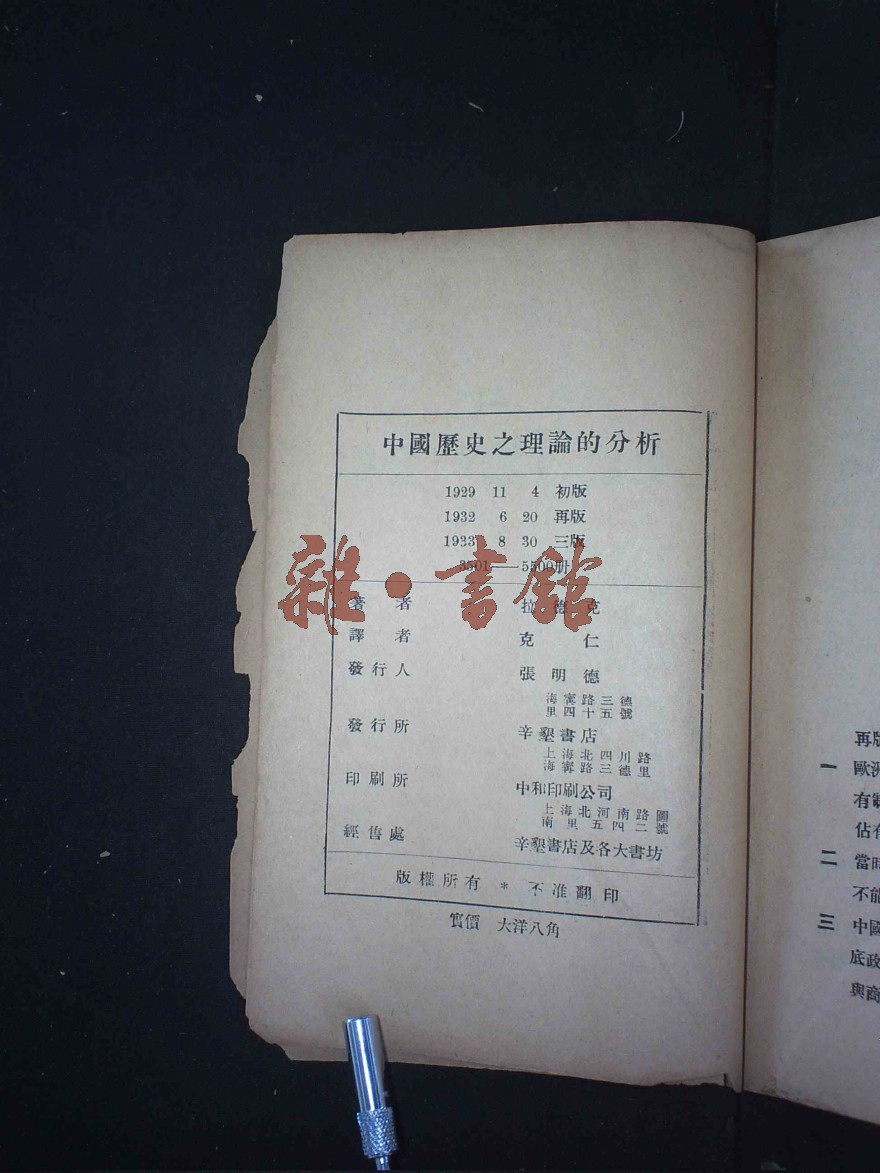 中國歷史之理論的分析
1929 11 4 初版
1932 6 20 再版
1933 8 30 三版
3501——5500册
雜·書館
著者 拉德克
譯者 克仁
發行人 張明德
海寗路三德
里四十五號
發行所 辛墾書店
上海北四川路
海寗路三德里
印刷所 中和印刷公司
上海北河南路圖
南里五四二號
經售處 辛墾書店及各大書坊
版權所有 * 不准翻印
實價 大洋八角
再版
一 歐洲
有
佔有
二 當時
不能
三 中國
底政
與商